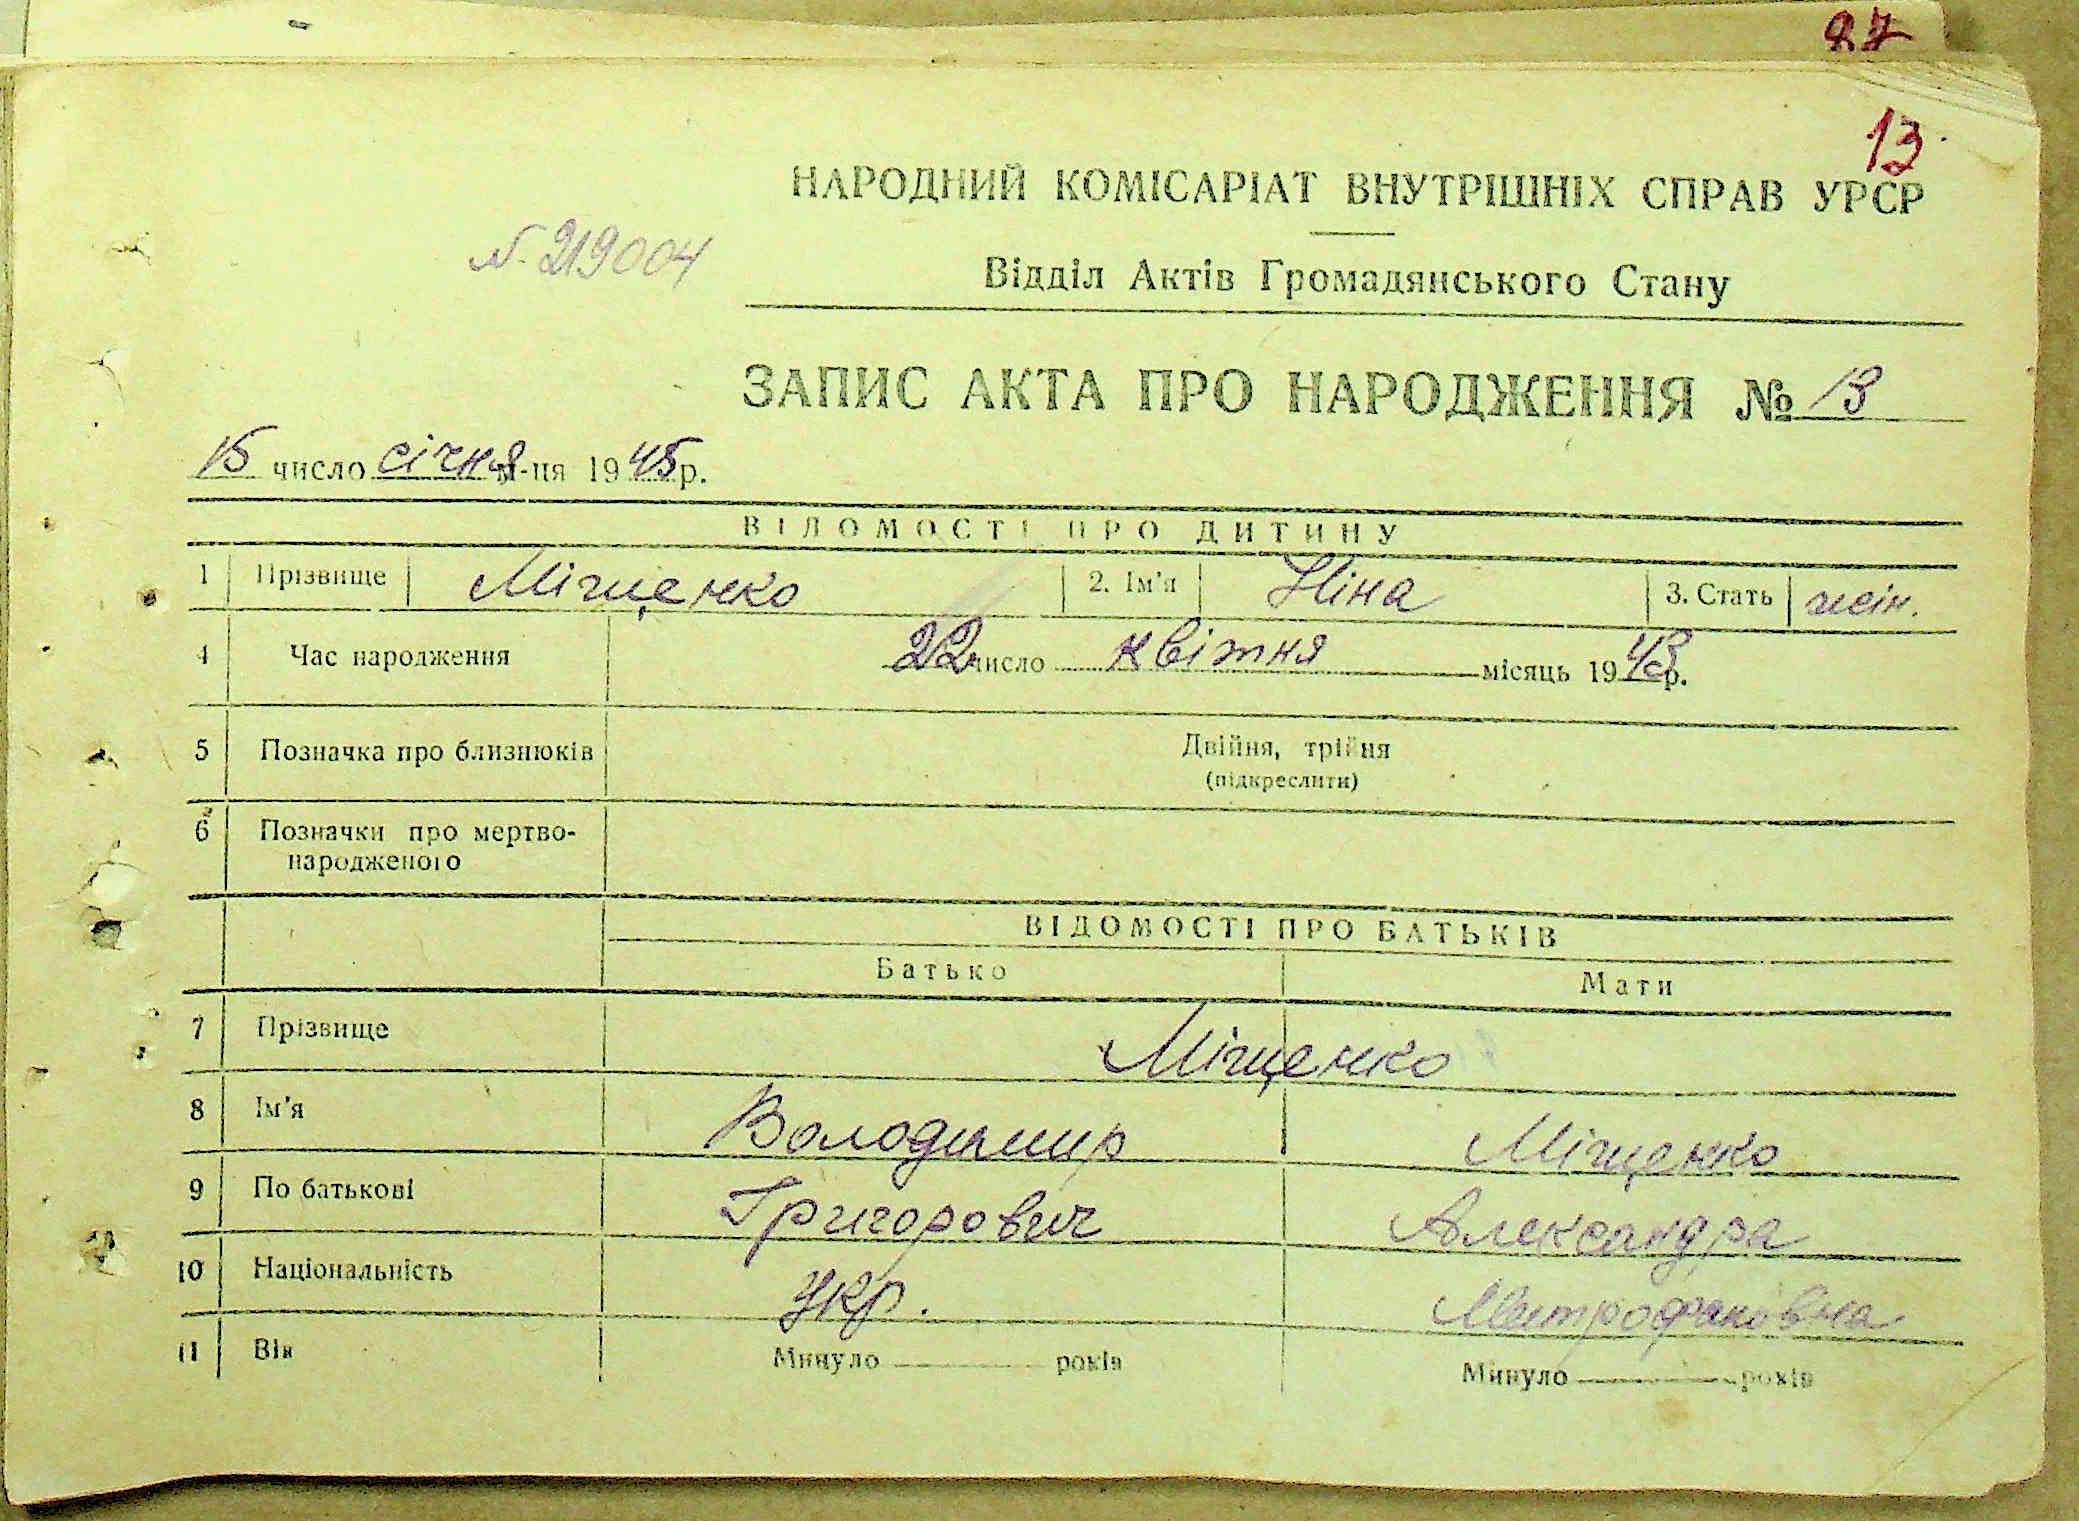 27
13
НАРОДНИЙ КОМІСАРІАТ ВНУТРІШНІХ СПРАВ УРСР
№ 219004
Відділ Актів Громадянського Стану
ЗАПИС АКТА ПРО НАРОДЖЕННЯ № 13
15 число січня м-ця 1945 р.
ВІДОМОСТІ ПРО ДИТИНУ
1 Прізвище Міщенко 2. Ім'я Ніна 3. Стать жін.
4 Час народження 22 число квітня місяць 1943 р.
5 Позначка про близнюків Двійня, трійня
(підкреслити)
6 Позначки про мертво-
народженого
ВІДОМОСТІ ПРО БАТЬКІВ
Батько Мати
7 Прізвище Міщенко
8 Ім'я Володимир Міщенко
9 По батькові Григорович Александра
10 Національність Укр. Митрофановна
11 Вік Минуло років Минуло років